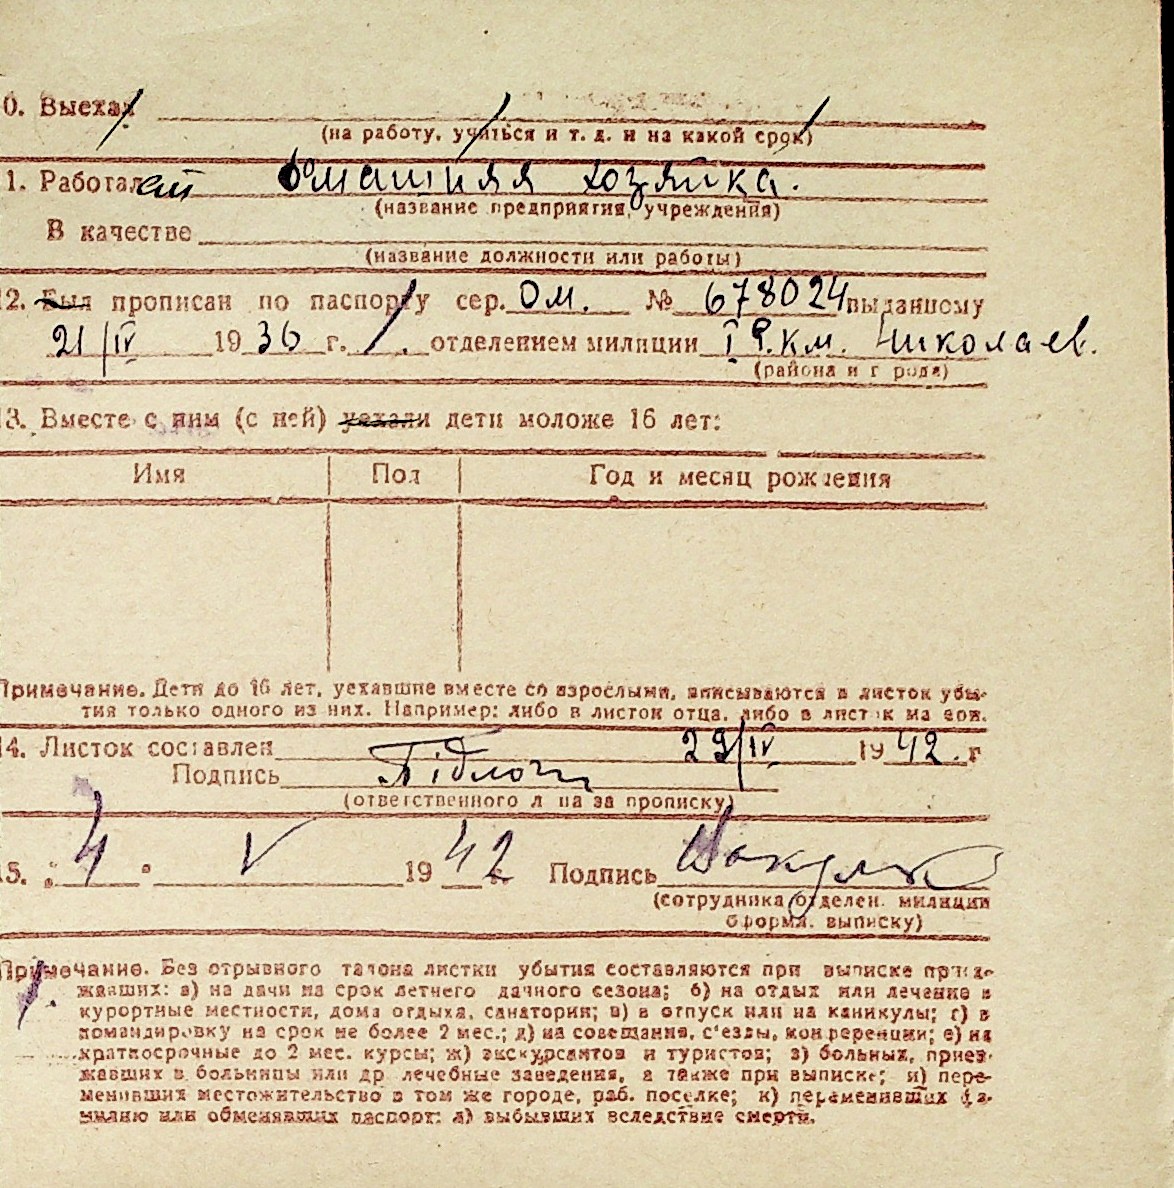 0. Выехал
(на работу, учиться и т. д. и на какой срок)
1. Работает домашняя хозяйка.
(название предприятия, учреждения)
В качестве
(название должности или работы)
12. Был прописан по паспорту сер. Ом. № 678024 выданному
21/IV 1936 г. отделением милиции I Р.км. Николаев.
(района и города)
13. Вместе с ним (с ней) уехали дети моложе 16 лет:
Имя Пол Год и месяц рождения
Примечание. Дети до 16 лет, уехавшие вместе со взрослыми, вписываются в листок убы-
тия только одного из них. Например: либо в листок отца, либо в листок матери.
14. Листок составлен 29/IV 1942. г
Подпись
(ответственного лица за прописку)
15. „4" V 1942 Подпись
(сотрудника отделен. милиции
оформл. выписку)
Примечание. Без отрывного талона листки убытия составляются при выписке приез-
жавших: а) на дачи на срок летнего дачного сезона; б) на отдых или лечение в
курортные местности, дома отдыха, санатории; в) в отпуск или на каникулы; г) в
командировку на срок не более 2 мес.; д) на совещания, с'езды, конференции; е) на
краткосрочные до 2 мес. курсы; ж) экскурсантов и туристов; з) больных, приез-
жавших в больницы или др лечебные заведения, а также при выписке; и) пере-
менивших местожительство в том же городе, раб. поселке; к) переменивших фа-
милию или обменявших паспорт; л) выбывших вследствие смерти.